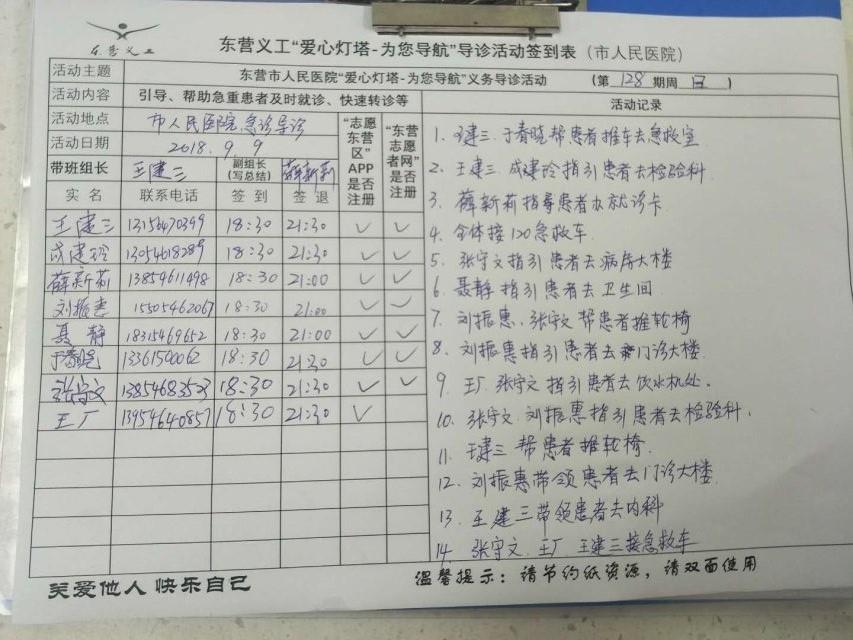 东营义工
东营义工“爱心灯塔-为您导航”导诊活动签到表（市人民医院）
活动主题 东营市人民医院“爱心灯塔-为您导航”义务导诊活动 （第 128 期周 日 ）
活动内容 引导、帮助急重患者及时就诊、快速转诊等
活动地点 市人民医院急诊导诊
活动日期 2018.9.9
带班组长 王建三 副组长（写总结） 薛新莉
“志愿东营区”APP是否注册
“东营志愿者网”是否注册
实名 联系电话 签到 签退
王建三 13156470399 18:30 21:30 ✓ ✓
成建玲 13054618289 18:30 21:30 ✓ ✓
薛新莉 13854611498 18:30 21:00 ✓ ✓
刘振惠 15505462067 18:30 21:00 ✓ ✓
聂静 18315469652 18:30 21:00 ✓ ✓
于春晓 13361500062 18:30 21:30 ✓ ✓
张守文 1385468353 18:30 21:30 ✓ ✓
王厂 13954640857 18:30 21:30 ✓
活动记录
1. 王建三.于春晓帮患者推车去急救室
2. 王建三.成建玲指引患者去检验科
3. 薛新莉指导患者办就诊卡
4. 全体接120急救车
5. 张守文指引患者去病房大楼
6. 聂静指引患者去卫生间
7. 刘振惠、张守文帮患者推轮椅
8. 刘振惠指引患者去门诊大楼
9. 王厂.张守文指引患者去饮水机处。
10. 张守文.刘振惠指引患者去检验科.
11. 王建三帮患者推轮椅.
12. 刘振惠带领患者去门诊大楼
13. 王建三带领患者去内科
14. 张守文.王厂.王建三接急救车
关爱他人 快乐自己
温馨提示：请节约纸资源，请双面使用